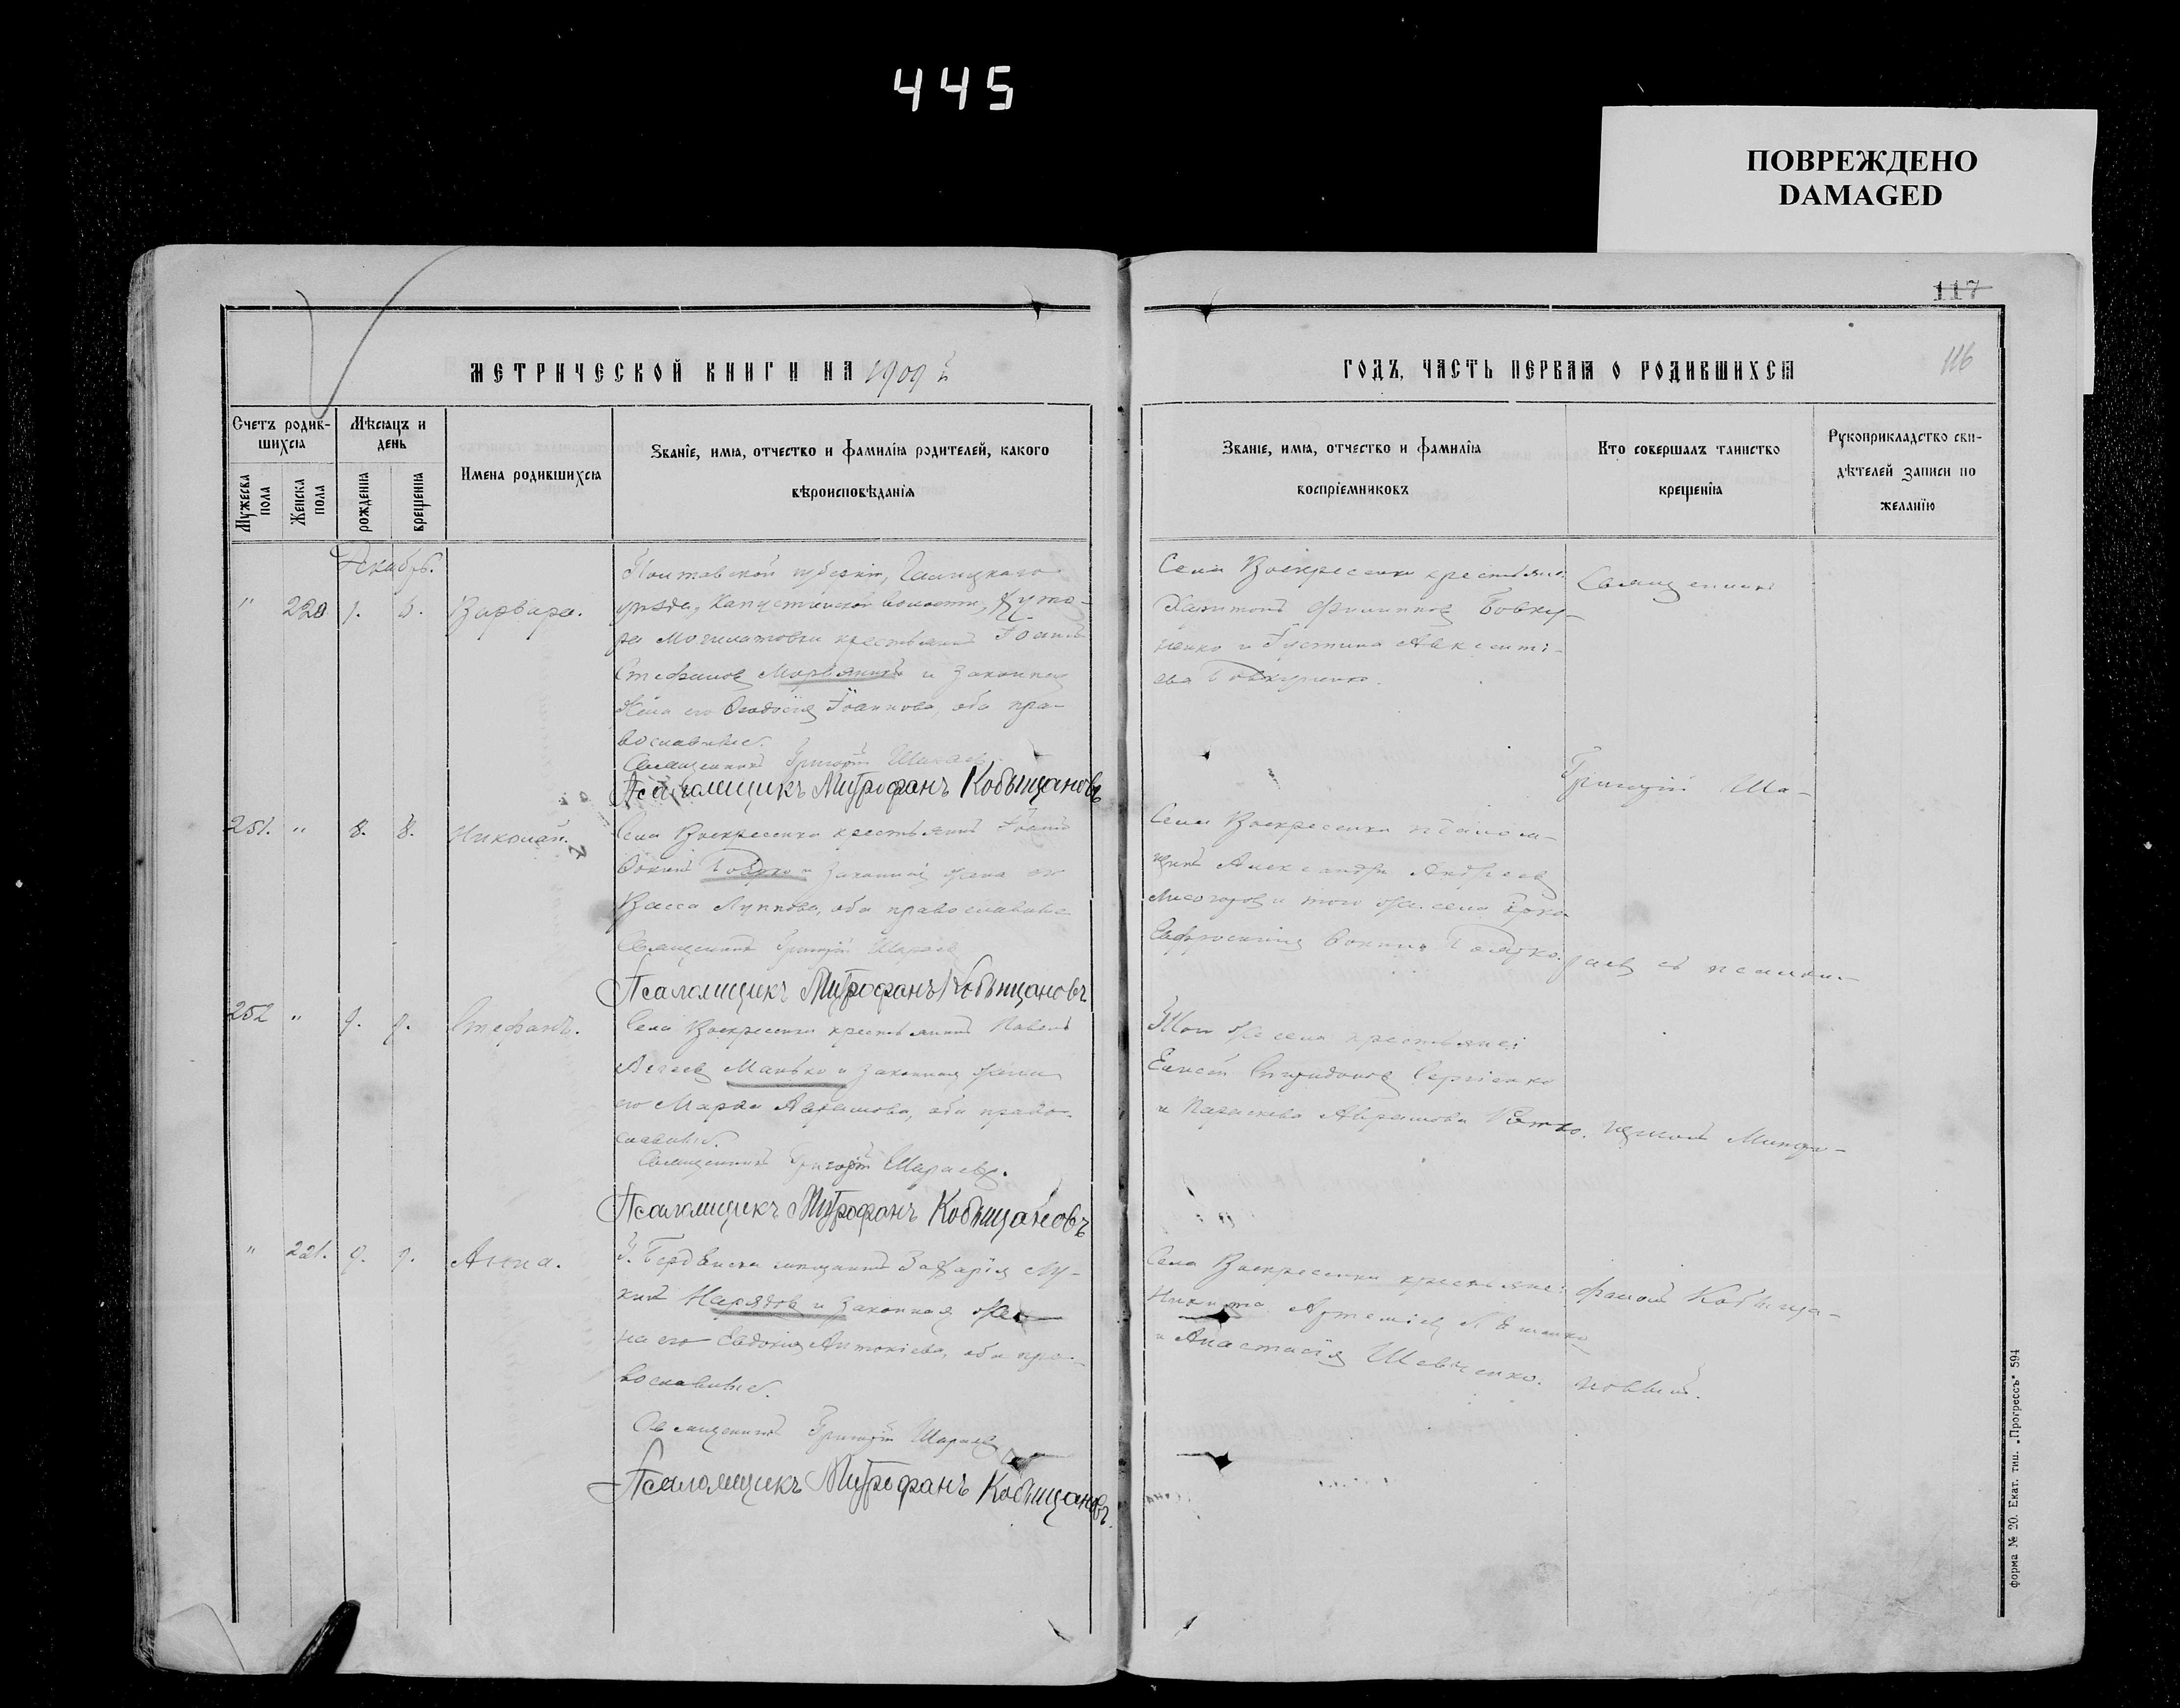 445
ПОВРЕЖДЕНО
DAMAGED
117
116
МЕТРИЧЕСКОЙ КНИГИ НА 1909 й
ГОДЪ, ЧАСТЬ ПЕРВАЯ О РОДИВШИХСЯ
Счетъ родив-
шихся
Мужеска
пола
Женска
пола
Мѣсяцъ и
день
рожденія
крещенія
Имена родившихся
Званіе, имя, отчество и фамилія родителей, какого
вѣроисповѣданія
Званіе, имя, отчество и фамилія
воспріемниковъ
Кто совершалъ таинство
крещенія
Рукоприкладство сви-
дѣтелей записи по
желанію
Декабрь.
" 220 Варвара.
Полтавской губерніи,
уѣзда, Капустинской волости, Хуто-
ра крестьянинъ Іоаннъ
Стефановъ и законная
жена его Ѳеодосія Іоаннова, оба пра-
вославные.
Священникъ Григорій
Псаломщикъ Митрофанъ Кобыщановъ
Села Воскресенки крестьяне:
Харитонъ Филипповъ Бовку-
ненко и Іустина Авксенті-
ева
Священникъ
251. " 8. 8. Николай.
Села Воскресенки крестьянинъ Іоаннъ
Ѳокинъ и законная жена его
Васса Луппова, оба православные
Священникъ Григорій
Псаломщикъ Митрофанъ Кобыщановъ
Села Воскресенки псалом-
щикъ Александръ Андреевъ
и того же села
Ѳокина
Григорій Ша-
раевъ съ псалом-
252 " 9. 9. Стефанъ.
Села Воскресенки крестьянинъ Павелъ
Манько и законная жена
его Марѳа Абрамова, оба право-
славные.
Священникъ Григорій Шараевъ.
Псаломщикъ Митрофанъ Кобыщановъ
Того же села крестьяне:
Елисей Спиридоновъ Сергіенко
и Параскева Абрамова
щикомъ Митро-
" 221. 9. 9. Анна.
Г. Бердянска мѣщанинъ Захарія Лу-
кинъ Нарядовъ и законная же-
на его Евдокія Антоніева, оба пра-
вославные.
Священникъ Григорій Шараевъ
Псаломщикъ Митрофанъ Кобыщановъ.
Села Воскресенки крестьяне:
Никита Артеміевъ
и Анастасія Шевченко.
фаномъ Кобыща-
новымъ.
форма № 20. Екат. тип. „Прогрессъ" 594